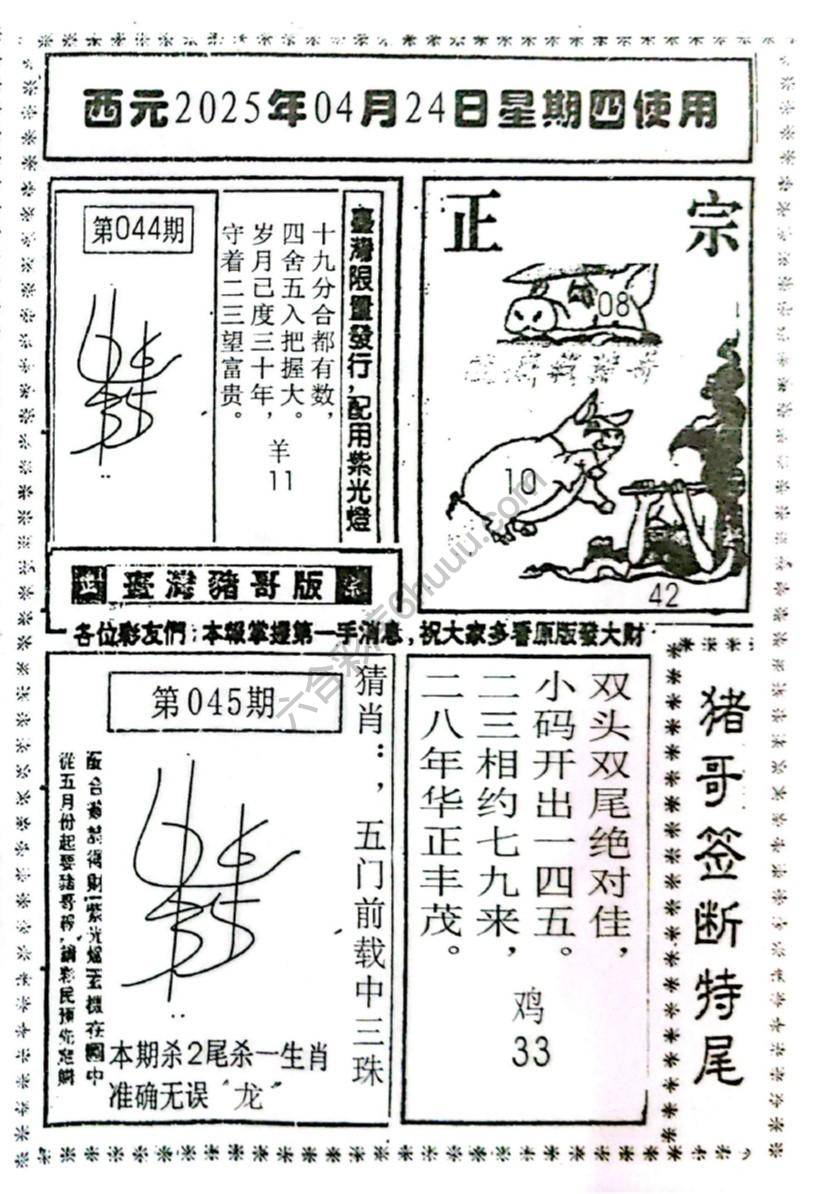 西元2025年04月24日星期四使用
第044期
臺灣限量發行，配用紫光燈
十九分合都有数，
四舍五入把握大。
岁月已度三十年，
守着二三望富贵。
羊
11
正宗
08
10
42
臺灣豬哥版
各位彩友們：本報掌握第一手消息，祝大家多看原版發大財
第045期
猜肖：，五门前载中三珠
從五月份起要豬哥報
本期杀2尾杀一生肖
准确无误“龙”
双头双尾绝对佳，
小码开出一四五。
二三相约七九来，
二八年华正丰茂。
鸡
33
猪哥签断特尾
六合彩店6huuu.com